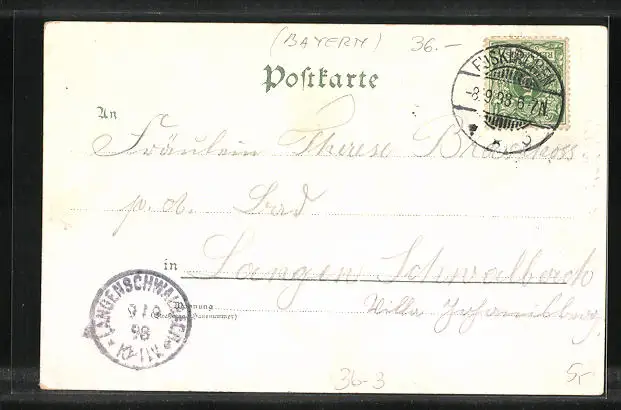 (BAYERN) 36.-
Postkarte
-8.9.98 6-7N
An
Fräulein Therese
p. ad. Bad
in Langen Schwalbach
LANGENSCHWALBACH
9 / 9
98
11-12V
Wohnung
(Straße und Hausnummer)
Villa
36-3 5,-